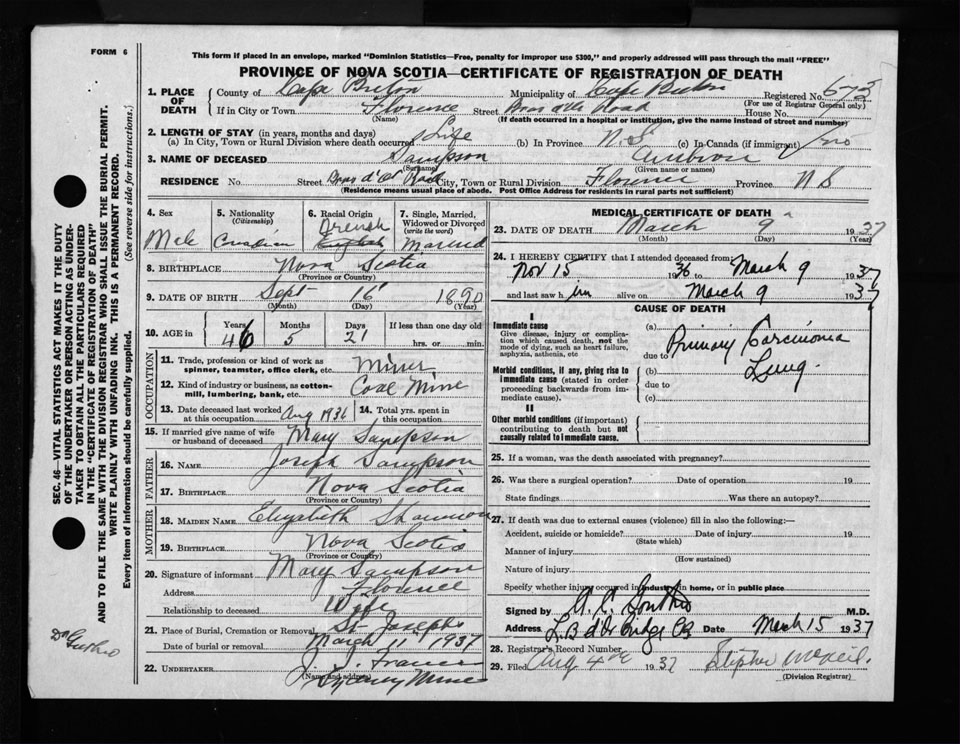 FORM 6
This form if placed in an envelope, marked "Dominion Statistics—Free, penalty for improper use $300," and properly addressed will pass through the mail "FREE"
PROVINCE OF NOVA SCOTIA—CERTIFICATE OF REGISTRATION OF DEATH
1. PLACE OF DEATH
County of Cape Breton Municipality of Cape Breton Registered No. 673
(For use of Registrar General only)
If in City or Town Florence Street Bras d'Or Road House No.
(Name) (If death occurred in a hospital or institution, give the name instead of street and number)
2. LENGTH OF STAY (in years, months and days)
(a) In City, Town or Rural Division where death occurred Life (b) In Province N.S (c) In Canada (if immigrant) no
3. NAME OF DECEASED Sampson Ambrose
(Surname) (Given name or names)
RESIDENCE No. Street Bras d'Or Road City, Town or Rural Division Florence Province N S
(Residence means usual place of abode. Post Office Address for residents in rural parts not sufficient)
4. Sex 5. Nationality (Citizenship) 6. Racial Origin 7. Single, Married, Widowed or Divorced (write the word)
Male Canadian French English Married
8. BIRTHPLACE Nova Scotia
(Province or Country)
9. DATE OF BIRTH Sept 16 1890
(Month) (Day) (Year)
10. AGE in Years Months Days If less than one day old
46 5 21 hrs. or min.
OCCUPATION
11. Trade, profession or kind of work as spinner, teamster, office clerk, etc. Miner
12. Kind of industry or business, as cotton-mill, lumbering, bank, etc. Coal Mine
13. Date deceased last worked at this occupation Aug 1936 14. Total yrs. spent in this occupation
15. If married give name of wife or husband of deceased Mary Sampson
FATHER
16. NAME Joseph Sampson
17. BIRTHPLACE Nova Scotia
(Province or Country)
MOTHER
18. MAIDEN NAME Elizabeth Shannon
19. BIRTHPLACE Nova Scotia
(Province or Country)
20. Signature of informant Mary Sampson
Address Florence
Relationship to deceased Wife
21. Place of Burial, Cremation or Removal St Josephs
Date of burial or removal March 11, 1937
22. UNDERTAKER J. J. Francis
(Name and address)
Sydney Mines
MEDICAL CERTIFICATE OF DEATH
23. DATE OF DEATH March 9 1937
(Month) (Day) (Year)
24. I HEREBY CERTIFY that I attended deceased from
Nov 15 1936 to March 9 1937
and last saw him alive on March 9 1937
CAUSE OF DEATH
I
Immediate cause
Give disease, injury or complication which caused death, not the mode of dying, such as heart failure, asphyxia, asthenia, etc
(a) Primary Carcinoma
due to
Morbid conditions, if any, giving rise to immediate cause (stated in order proceeding backwards from immediate cause).
(b) Lung.
due to
(c)
II
Other morbid conditions (if important) contributing to death but not causally related to immediate cause.
25. If a woman, was the death associated with pregnancy?
26. Was there a surgical operation? Date of operation 19
State findings Was there an autopsy?
27. If death was due to external causes (violence) fill in also the following:—
Accident, suicide or homicide? Date of injury 19
(State which)
Manner of injury
(How sustained)
Nature of injury
Specify whether injury occurred in industry in home, or in public place
Signed by M.D.
Address L. B d'Or Bridge CB Date March 15 1937
28. Registrar's Record Number
29. Filed Aug 4th 1937 Stephen McNeil.
(Division Registrar)
SEC. 46—VITAL STATISTICS ACT MAKES IT THE DUTY
OF THE UNDERTAKER OR PERSON ACTING AS UNDER-
TAKER TO OBTAIN ALL THE PARTICULARS REQUIRED
IN THE "CERTIFICATE OF REGISTRATION OF DEATH"
AND TO FILE THE SAME WITH THE DIVISION REGISTRAR WHO SHALL ISSUE THE BURIAL PERMIT.
WRITE PLAINLY WITH UNFADING INK. THIS IS A PERMANENT RECORD.
Every item of information should be carefully supplied. (See reverse side for instructions.)
Dr